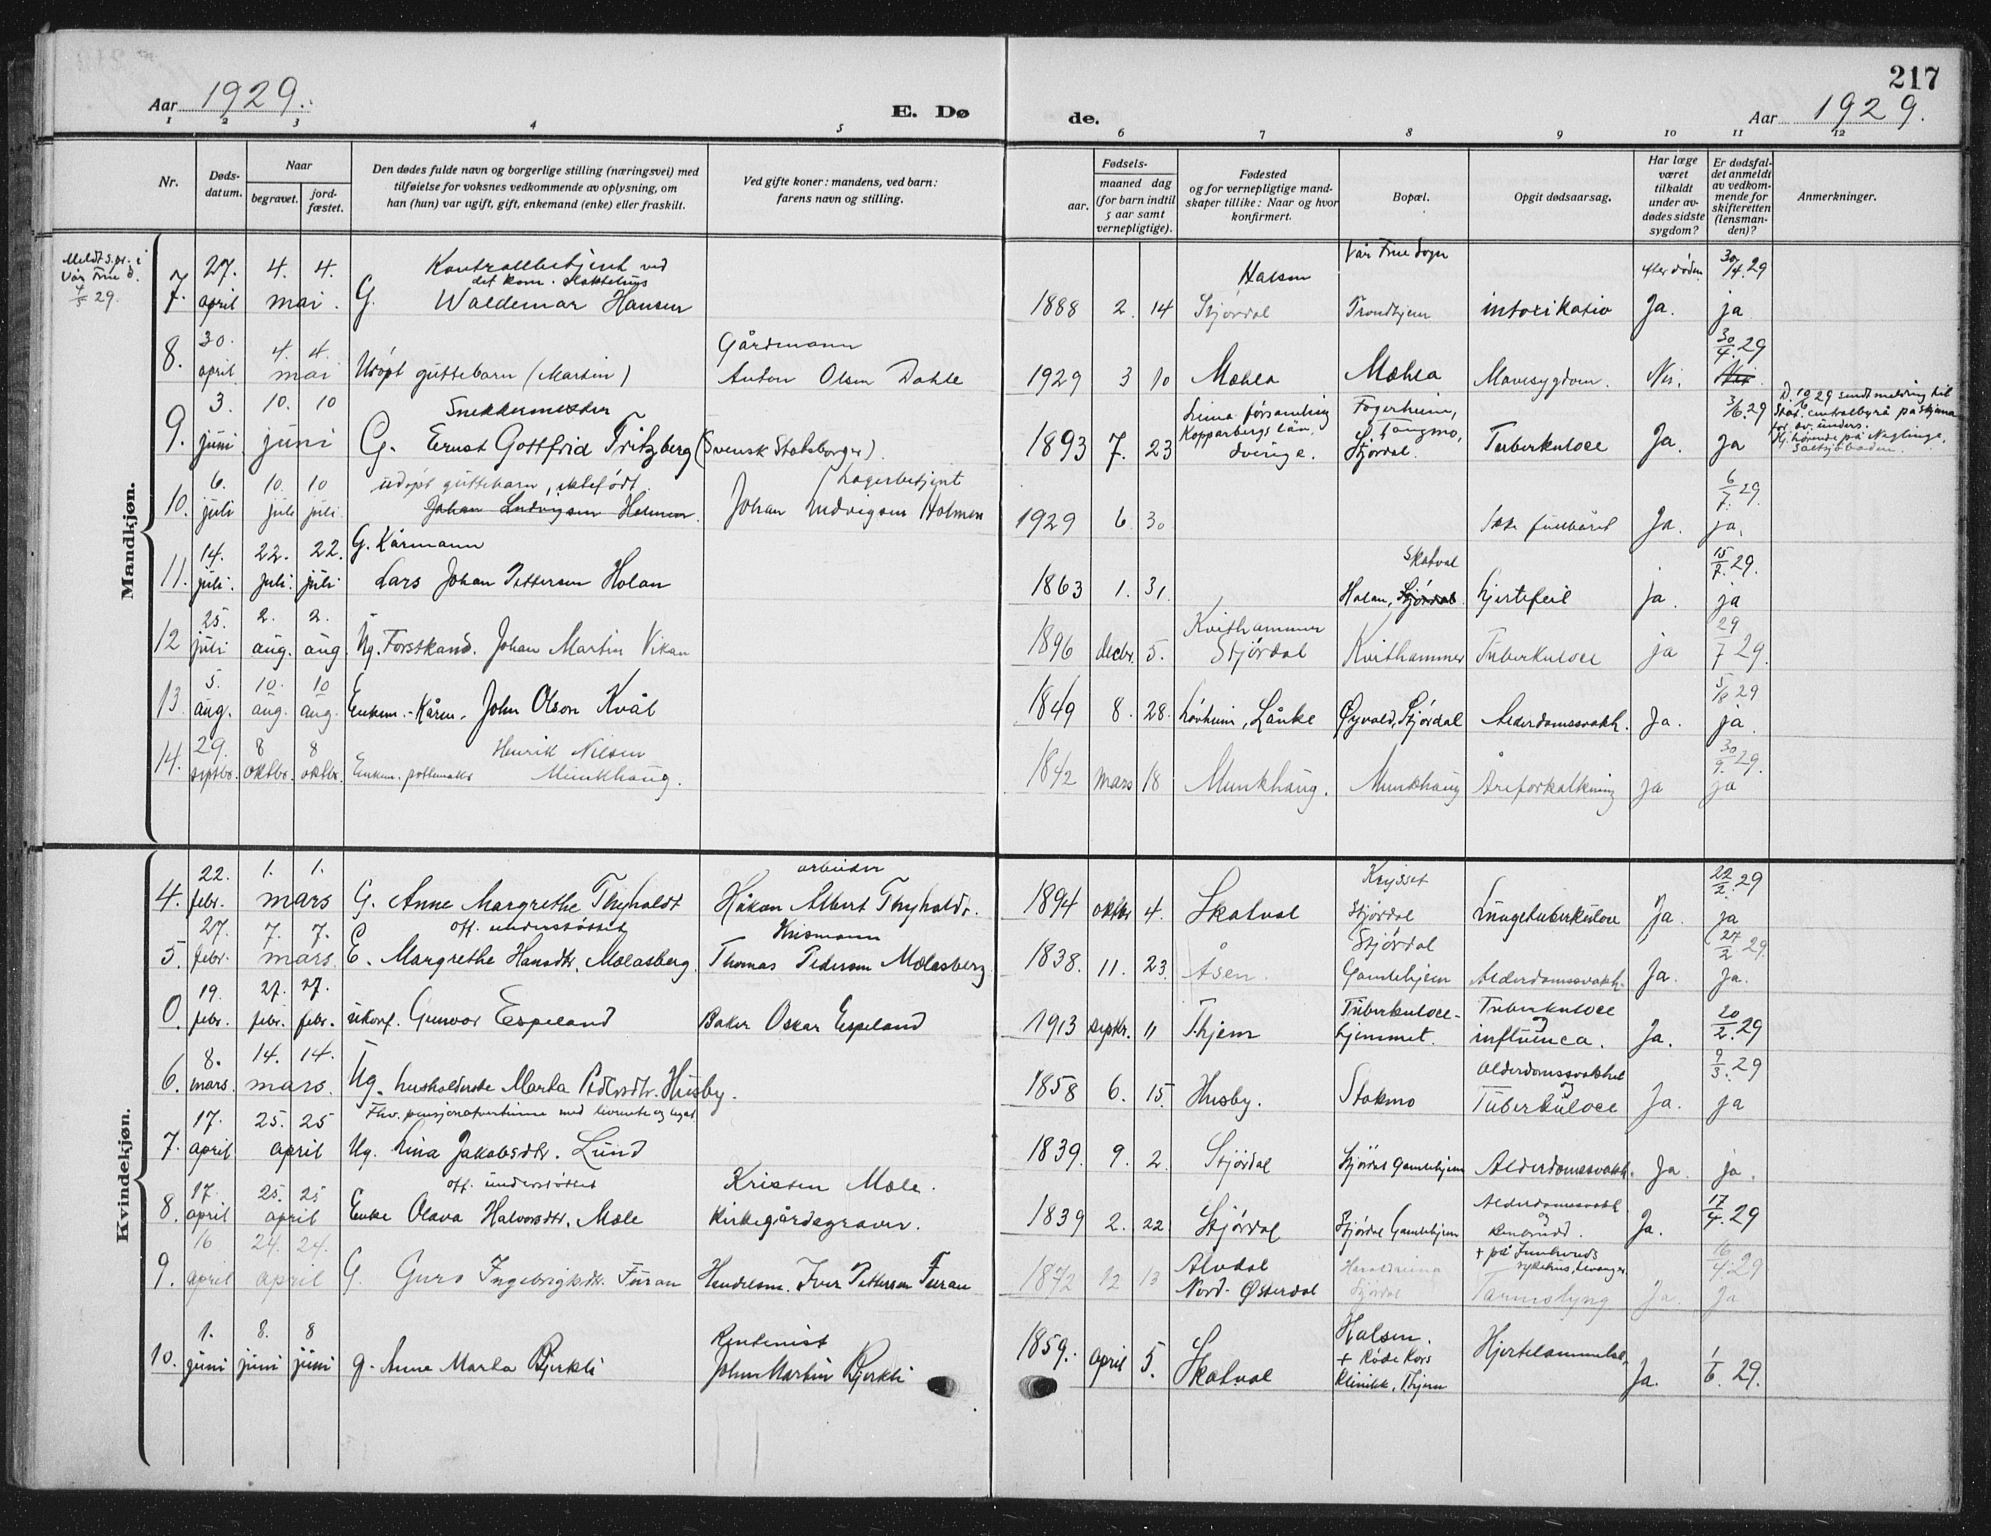 217
Aar 1929.
E. Dø
de.
Aar 1929.
1 2 3 4 5 6 7 8 9 10 11 12
Nr.
Døds-
datum.
Naar
begravet.
jord-
fæstet.
Den dødes fulde navn og borgerlige stilling (næringsvei) med
tilføielse for voksnes vedkommende av oplysning, om
han (hun) var ugift, gift, enkemand (enke) eller fraskilt.
Ved gifte koner: mandens, ved barn:
farens navn og stilling.
Fødsels-
aar.
maaned dag
(for barn indtil
5 aar samt
vernepligtige).
Fødested
og for vernepligtige mand-
skaper tillike: Naar og hvor
konfirmert.
Bopæl.
Opgit dødsaarsag.
Har læge
været
tilkaldt
under av-
dødes sidste
sygdom?
Er dødsfal-
det anmeldt
av vedkom-
mende for
skifteretten
(lensman-
den)?
Anmerkninger.
Mandkjøn.
Meldt s.pr. i
Vår Frue
4/5 29.
27. 4. 4. Kontrollbetjent ved Halsen Vår Frue sogn efter døden 30/4.29
det kom. Slaktehus
7. april mai. G. Waldemar Hansen 1888 2. 14 Stjørdal Trondhjem intoxikatio Ja. ja
30. 4. 4. Gårdmann 30/4.29
8. april mai Udøpt guttebarn (Martin) Anton Olsen Dahle 1929 3 10 Mæhla Mæhla Mavesygdom. Nei. Nei
3. 10. 10 Snekkermester Lima församling Fagerheim, 3/6.29
9. juni juni G. Ernst Gottfrid Fritzberg (Svensk Statsborger). 1893 7. 23 Kopparbergs län, Sverige. Tangmo, Stjørdal. Tuberkulose Ja. ja
D. 10/6 29 sendt melding til
Stat. centralbyrå på skjema
for av. unders.
Hj. hørende på Neglinge,
Saltsjöbaden.
6. 10. 10 udøpt guttebarn, ektefødt. Lagerbetjent 6/7.29.
10. juli juli juli. Johan Ludvigsen Holmen. Johan Ludvigsen Holmen 1929 6. 30 Ikke fullbåret Ja. ja.
14. 22. 22. G. Kårmann Skatval 15/7.29.
11. juli. juli juli Lars Johan Pettersen Holan 1863 1. 31. Holan, Stjørdal. hjertefeil ja. ja
25. 2. 2. Kvithammer 29/7 29.
12 juli aug. aug. Ug. Forstkand. Johan Martin Vikan 1896 decbr. 5. Stjørdal Kvithammer Tuberkulose ja
5. 10. 10 5/8 29
13. aug. aug. aug. Enkem. - Kårm. John Olson Kvål 1849 8. 28. Løvheim, Lånke Øyvald, Stjørdal Alderdomssvakh. Ja. ja.
29. 8 8 Henrik Nilsen 30/9.29.
14. septbr. oktbr. oktbr. Enkem. pottemaker Munkhaug. 1842 mars 18 Munkhaug. Munkhaug Åreforkalkning ja ja
Kvindekjøn.
22. 1. 1. arbeider Krysset 22/2.29
4. febr. mars G. Anne Margrethe Thyholdt Håkon Albert Thyholdt. 1894 oktbr 4. Skatval Stjørdal Lungetuberkulose Ja. ja
27. 7. 7. off. understøttet Husmann Stjørdal 27/2 29.
5. febr. mars. E. Margrethe Hansdtr. Mælasberg. Thomas Pedersen Mælasberg. 1838. 11. 23. Åsen. Gamlehjem Alderdomssvakh. Ja. Ja.
19. 27. 27. Tuberkulose- Tuberkulose 20/2.29
0. febr. febr. febr. ukonf. Gunvor Espeland Baker Oskar Espeland 1913 septbr. 11 T.hjem hjemmet. og influenca. Ja.
8. 14. 14. Alderdomssvakhet 9/3.29
6. mars. mars. Ug. husholderske Marta Pedersdtr. Husby. 1858 6. 15. Husby. Stokmo og Tuberkulose Ja. ja
17. 25. 25 Fhv. pensjonatvertinne med livrente og legat
7. april april Ug. Lina Jakobsdtr. Lund 1839. 9. 2. Stjørdal Stjørdal Gamlehjem Alderdomssvakh. Ja. ja.
17 25. 25 off. understøttet Kristen Mæle. Alderdomssvakh. 17/4.29
8. april april Enke Olava Halvorsdtr. Mæle Kirkegårdsgraver. 1839 2. 22 Stjørdal Stjørdal Gamlehjem og Benbrudd. Ja.
16 24. 24. Alvdal + på Innherreds sykehus, Levanger. 16/4.29
9. april april G. Guro Ingebrigtsdtr. Furan Handelsm. Iver Pettersen Furan 1872 12 13 Nord-Østerdal Stjørdal Tarmslyng Ja. Ja
1. 8. 8 Rentenist Halsen.
10. juni juni juni g. Anne Marta Bjerkli John Martin Bjerkli 1859. april 5. Skatval + Røde Kors Klinikk, T.hjem Hjertelammelse. Ja. 1/6. 29.